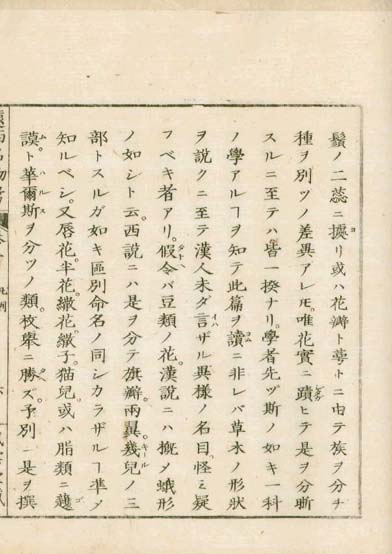 鬚ノ二蕊ニ據リ或ハ花瓣ト萼トニ由テ族ヲ分チ
種ヲ別ツノ差異アレ𪜈唯花實ニ蹟ヒテ是ヲ分斷
スルニ至テハ皆一揆ナリ學者先ヅ斯ノ如キ一科
ノ學アルヿヲ知テ此篇ヲ讀ニ非レバ草木ノ形狀
ヲ說クニ至テ漢人未ダ言ザル異樣ノ名目怪ミ疑
フベキ者アリ假令バ豆類ノ花漢說ニハ概メ蛾形
ノ如シト云西說ニハ是ヲ分テ旗瓣兩翼幾兒ノ三
部トスルガ如キ區別命名ノ同シカラザルヿ準メ
知ルベシ又唇花半花繖花繖子猫兒或ハ脂類ニ
謨ト華爾斯ヲ分ツノ類枚舉ニ勝ズ予別ニ是ヲ撰